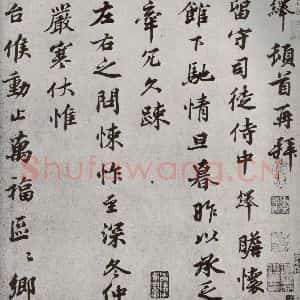 絳頓首再拜
留守司徒侍中絳瞻懷
館下馳情旦暮昨以承乏
宰冗久疎
左右之問悚怍至深冬仲
嚴寒伏惟
台候動止萬福區〻鄉
Shufawang.CN